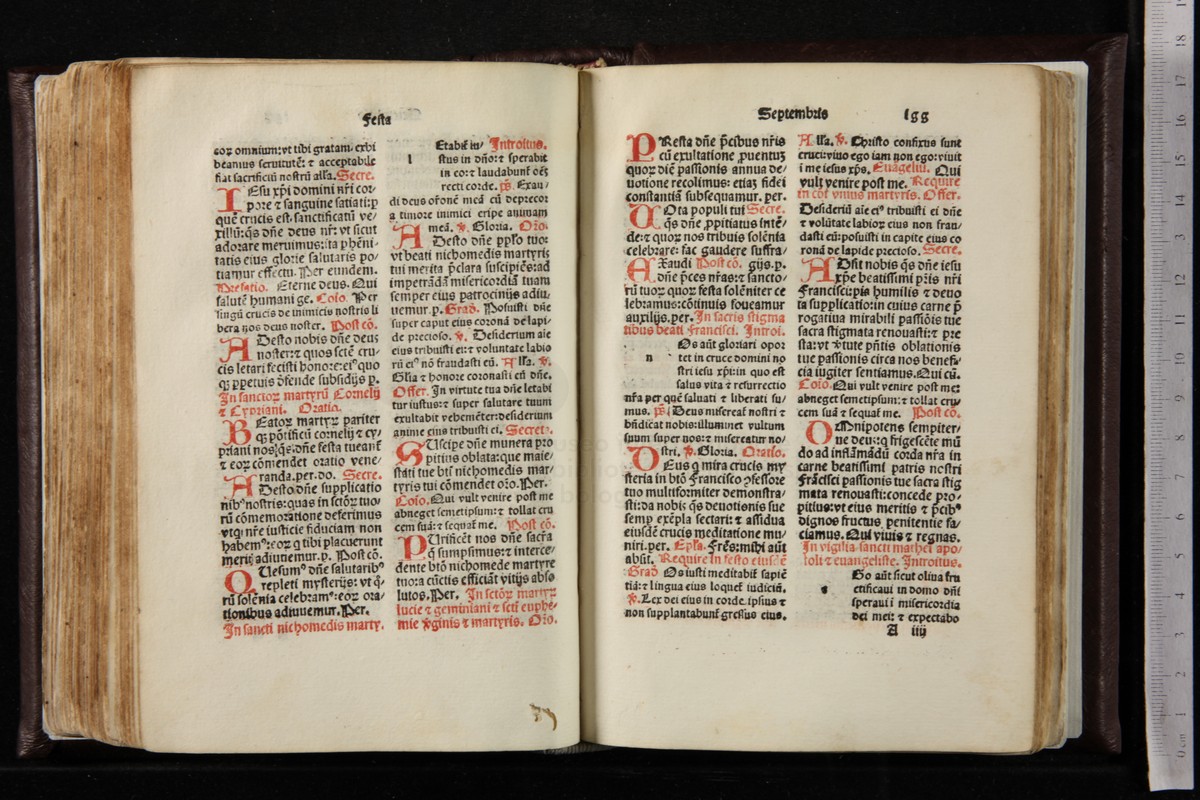 Festa
coꝝ omnium: vt tibi gratam. exhi
beamus seruitutē: ⁊ acceptabile
fiat sacrificiū nostrū alľa. Secre.
IEsu xp̄i domini nr̄i cor-
pore ⁊ sanguine satiati: p
quē crucis est sanctificatū ve-
xillū: q̄s dn̄e deus nr̄: vt sicut
adorare meruimus: ita phēni-
tatis eius glorie salutaris po-
tiamur effectu. Per eundem.
Prefatio. Eterne deus. Qui
salutē humani ge. Cōio. Per
signū crucis de inimicis nostris li
bera nos deus noster. Post cō.
ADesto nobis dn̄e deus
noster: ⁊ quos sctē cru-
cis letari fecisti honore: eiꝰ quoꝫ
q̄ ꝑpetuis dfende subsidijs ꝑ.
In sanctoꝝ martyrū Cornelij
⁊ Cypriani. Oratio.
BEatoꝝ martyꝝ pariter
qꝫ pōtificū cornelij ⁊ cy-
priani nos q̄s dn̄e festa tueant̄
⁊ eoꝝ cōmendet oratio vene-
randa. per. do. Secre.
ADesto dn̄e supplicatio
nibꝰ nostris: quas in sctōꝝ tuo-
rū cōmemoratione deferimus
vt q̄ nr̄e iusticie fiduciam non
habemꝰ: eoꝝ q̄ tibi placuerunt
meritꝭ adiuuemur. p. Post cō.
QUesumꝰ dn̄e salutaribꝰ
repleti mysterijs: vt q̄-
rū solēnia celebramꝰ: eoꝝ ora-
tionibus adiuuemur. Per.
In sancti nichomedis marty.
l
Etabit̄ iu- Introitus.
stus in dn̄o: ⁊ sperabit
in eo: ⁊ laudabunt̄ oēs
recti corde. ps̄. Exau-
di deus orōnē meā cū deprecor
a timore inimici eripe animam
meā. ℣. Gloria. Oro.
ADesto dn̄e pp̄lo tuo:
vt beati nichomedis martyris
tui merita p̄clara suscipiēs: ad
impetrādā misericordiā tuam
semper eius patrocinijs adiu-
uemur. p. Grad. Posuisti dn̄e
super caput eius coronā de lapi-
de precioso. ℣. Desiderium aīe
eius tribuisti ei: ⁊ voluntate labio
rū eiꝰ nō fraudasti eū. Alľa. ℣.
Gľia ⁊ honore coronasti eū dn̄e.
Offer. In virtute tua dn̄e letabi
tur iustus: ⁊ super salutare tuum
exultabit vehemēter: desiderium
anime eius tribuisti ei. Secret.
SUscipe dn̄e munera pro
pitius oblata: que maie-
stati tue bt̄i nichomedis mar-
tyris tui cōmendet oro. Per.
Cōio. Qui vult venire post me
abneget semetipsum: ⁊ tollat cru
cem suā: ⁊ sequat̄ me. Post cō.
PUrificēt nos dn̄e sacr̄a
q̄ sumpsimus: ⁊ interce-
dente bt̄o nichomede martyre
tuo: a cūctis efficiāt vitijs abso
lutos. Per. In sctōꝝ martyꝝ
lucie ⁊ geminiani ⁊ scti euphe-
mie v̄ginis ⁊ martyris. Oro.
Septembris 188
PResta dn̄e p̄cibus nr̄is
cū exultatione ꝓuentus
quoꝝ diē passionis annua de-
uotione recolimus: etiaꝫ fidei
constantiā subsequamur. per.
UOta populi tui Secre.
q̄s dn̄e ꝓpitiatus intē-
de: ⁊ quoꝝ nos tribuis solēnia
celebrare: fac gaudere suffra-
EXaudi Post cō. gijs. p.
dn̄e p̄ces nr̄as: ⁊ sancto-
rū tuoꝝ quoꝝ festa solēniter ce
lebramus: cōtinuis foueamur
auxilijs. per. In sacris stigma
tibus beati Francisci. Introi.
n
Os aūt gloriari opor
tet in cruce domini no
stri iesu xp̄i: in quo est
salus vita ⁊ resurrectio
nr̄a per quē saluati ⁊ liberati su-
mus. ps̄. Deus misereat̄ nostri ⁊
bn̄dicat nobis: illuminet vultum
suum super nos: ⁊ misereatur no-
stri. ℣. Gloria. Oratio.
DEus q̄ mira crucis my
steria in bt̄o Francisco ꝓfessore
tuo multiformiter demonstra-
sti: da nobis q̄s deuotionis sue
semꝑ exēpla sectari: ⁊ assidua
eiusdē crucis meditatione mu-
niri. per. Epľa. Fr̄es: mihi aūt
absit. Require in festo eiusdē
Grad Os iusti meditabit̄ sapiē
tiā: ⁊ lingua eius loquet̄ iudiciū.
℣. Lex dei eius in corde ipsius ⁊
non supplantabunt̄ gressus eius.
Alľa. ℣. Christo confixus sum
cruci: viuo ego iam non ego: viuit
i me iesus xp̄s. Euāgeliū. Qui
vult venire post me. Require
in cōi vnius martyris. Offer.
Desideriū aīe eiꝰ tribuisti ei dn̄e
⁊ volūtate labioꝝ eius non frau-
dasti eū: posuisti in capite eius co
ronā de lapide precioso. Secre.
ADsit nobis q̄s dn̄e iesu
xp̄e beatissimi pr̄is nr̄i
Francisci: pia humilis ⁊ deuo
ta supplicatio: in cuius carne p̄
rogatiua mirabili passiōis tue
sacra stigmata renouasti: ⁊ pre
sta: vt v̄tute pn̄tis oblationis
tue passionis circa nos benefi-
cia iugiter sentiamus. Qui cū.
Cōio. Qui vult venire post me:
abneget semetipsum: ⁊ tollat cru-
cem suā ⁊ sequat̄ me. Post cō.
OMnipotens sempiter-
ne deus: q̄ frigescēte mū
do ad inflāmādū corda nr̄a in
carne beatissimi patris nostri
Frācisci passionis tue sacra stig
mata renouasti: concede pro-
pitius: vt eius meritis ⁊ p̄cibꝰ
dignos fructus penitentie fa-
ciamus. Qui viuis ⁊ regnas.
In vigilia sancti mathei apo-
stoli ⁊ euangeliste. Introitus.
e
Go aūt sicut oliua fru
ctificaui in domo dn̄i
speraui i misericordia
dei mei: ⁊ expectabo
A iiij